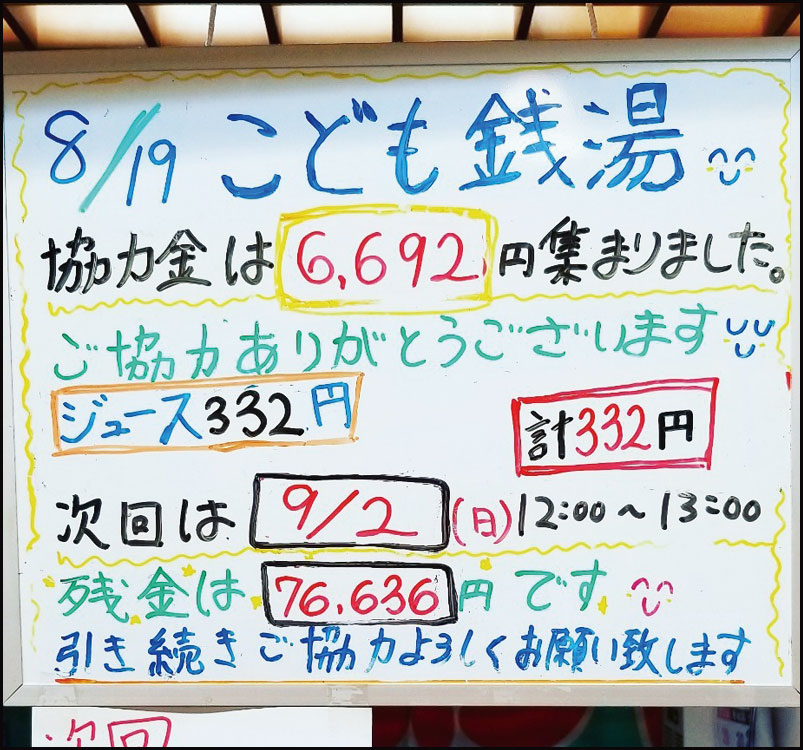 8/19 こども銭湯
協力金は 6,692 円集まりました。
ご協力ありがとうございます
ジュース332円 計332円
次回は 9/2 (日) 12:00~13:00
残金は 76,636 円です
引き続きご協力よろしくお願い致します
次回